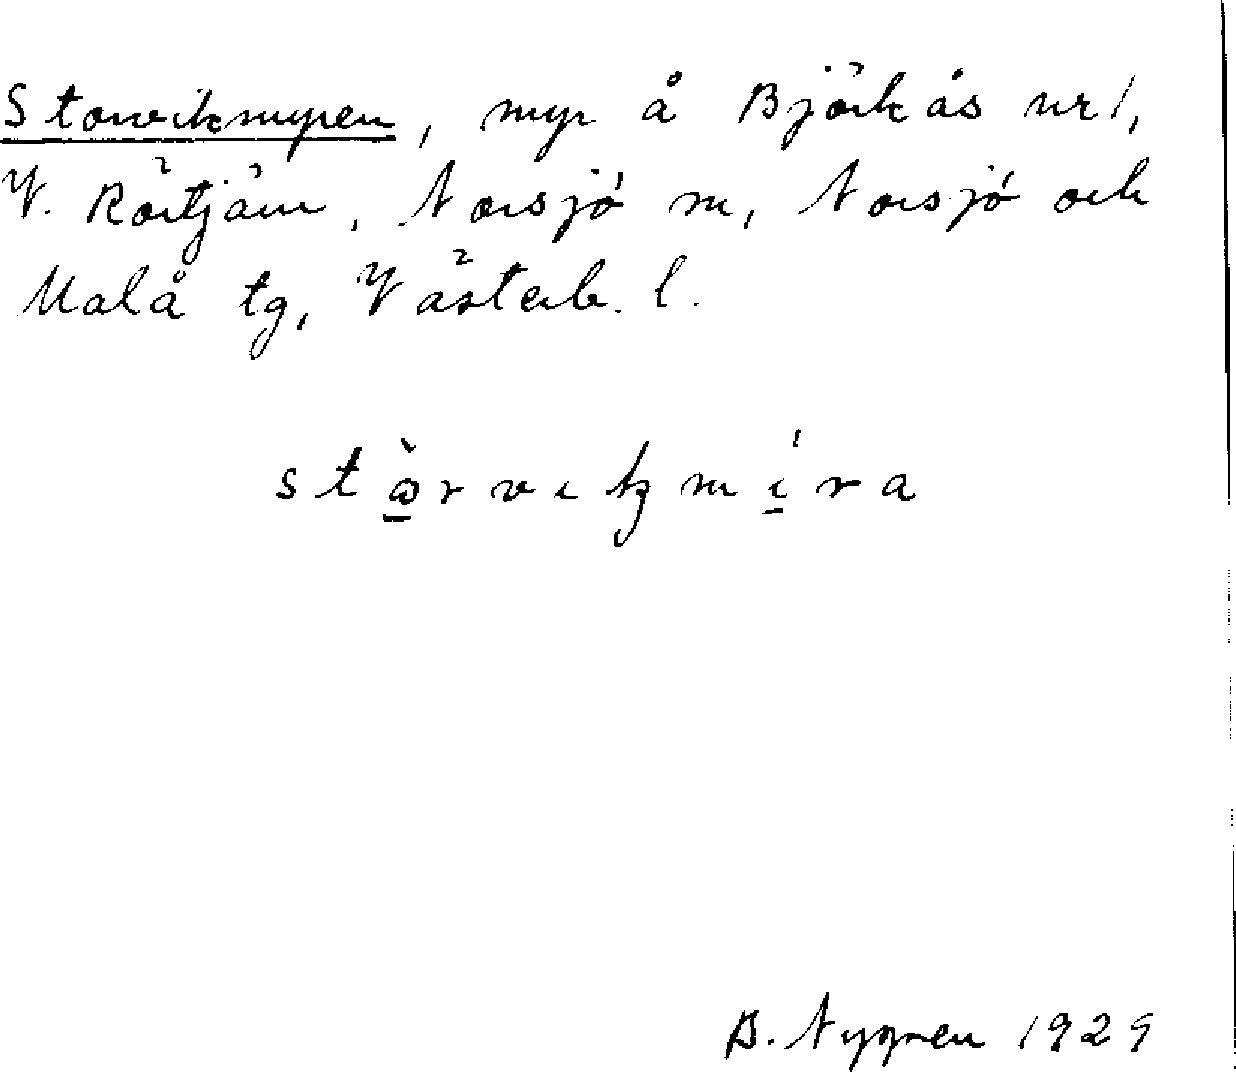 Storvikmyren, myr å Björkås nr 1,
V. Rörtjärn, Norsjö sn, Norsjö och
Malå tg, Västerb. l.
stɷ̀rvikmíra
B. Nygren 1929